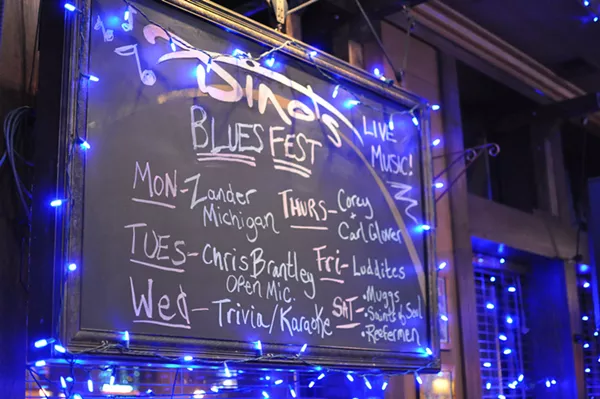 Dino's
BLUES FEST
LIVE
MUSIC!
MON - Zander
Michigan
TUES - Chris Brantley
OPEN MIC.
Wed - Trivia/Karaoke
THURS - Corey
+ Carl Glover
Fri - Luddites
SAT - • Muggs
• Saints of Soul
• Reefermen